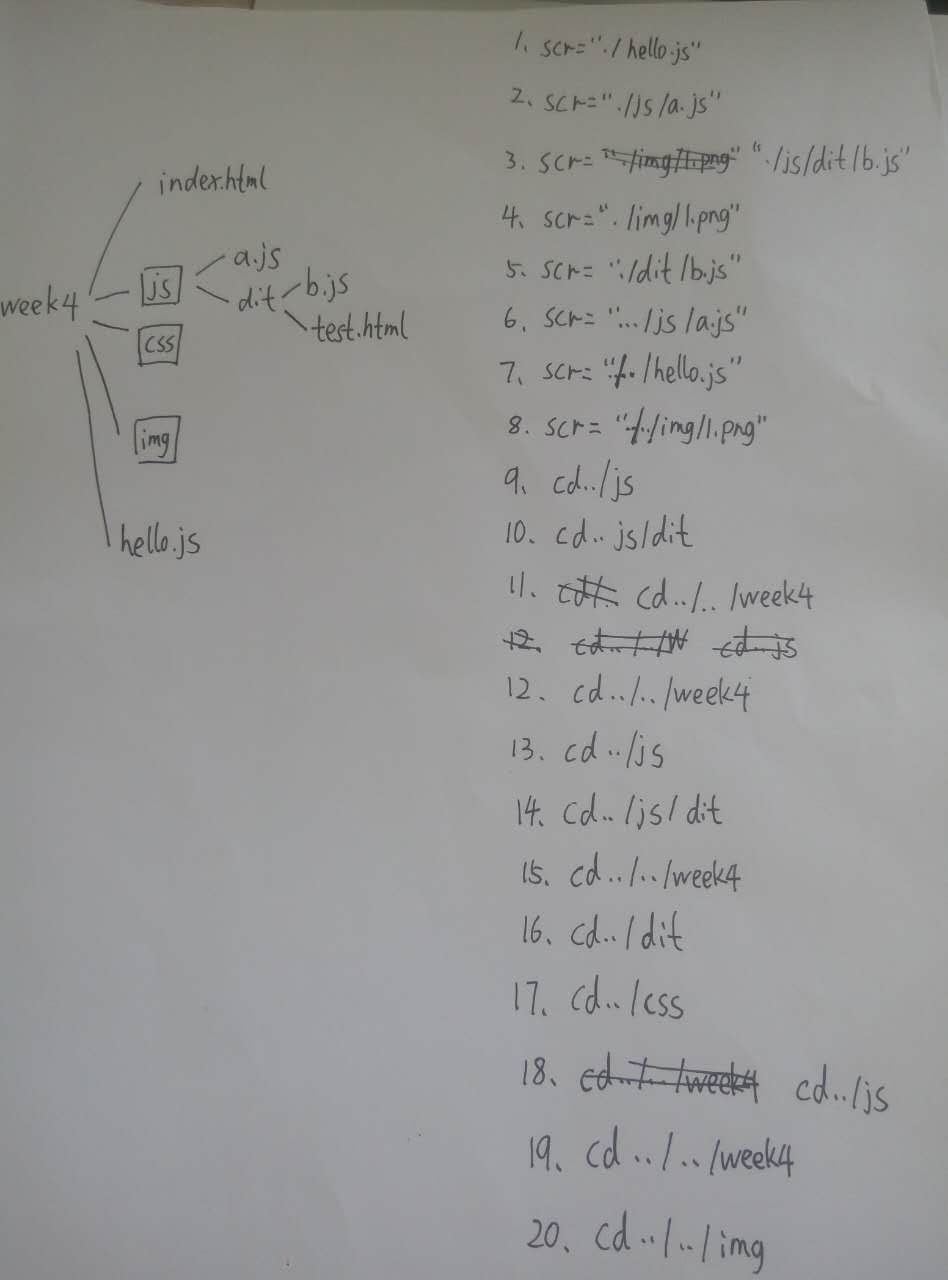 index.html
week4
js
a.js
dit
b.js
test.html
css
img
hello.js
1. scr="./hello.js"
2. scr="./js/a.js"
3. scr= "./img/1.png" "./js/dit/b.js"
4. scr="./img/1.png"
5. scr= "./dit/b.js"
6. scr= ".../js/a.js"
7. scr= "../hello.js"
8. scr= "../img/1.png"
9. cd../js
10. cd.. js/dit
11. cd/.. cd../.. /week4
12. cd../../W cd..js
12. cd../../week4
13. cd ../js
14. cd../js/dit
15. cd../../week4
16. cd../dit
17. cd../css
18. cd../../week4 cd../js
19. cd ../../week4
20. cd../../img